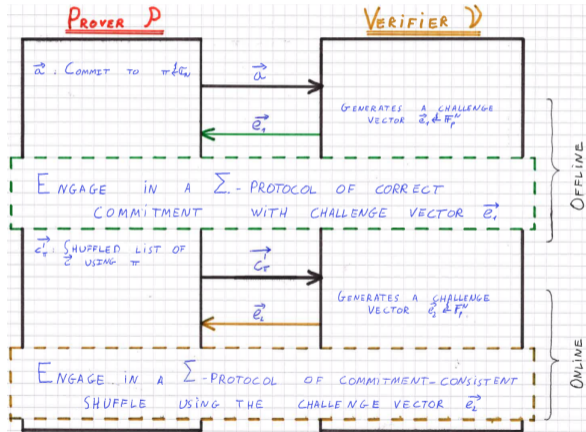 PROVER P
VERIFIER V
a⃗ : COMMIT TO π
a⃗
GENERATES A CHALLENGE
VECTOR e⃗₁ ∈ 𝔽ₚᴺ
e⃗₁
OFFLINE
ENGAGE IN A Σ-PROTOCOL OF CORRECT
COMMITMENT WITH CHALLENGE VECTOR e⃗₁
SHUFFLED LIST OF
c⃗ USING π
GENERATES A CHALLENGE
VECTOR e⃗₂ ∈ 𝔽ₚᴺ
e⃗₂
ONLINE
ENGAGE IN A Σ-PROTOCOL OF COMMITMENT-CONSISTENT
SHUFFLE USING THE CHALLENGE VECTOR e⃗₂